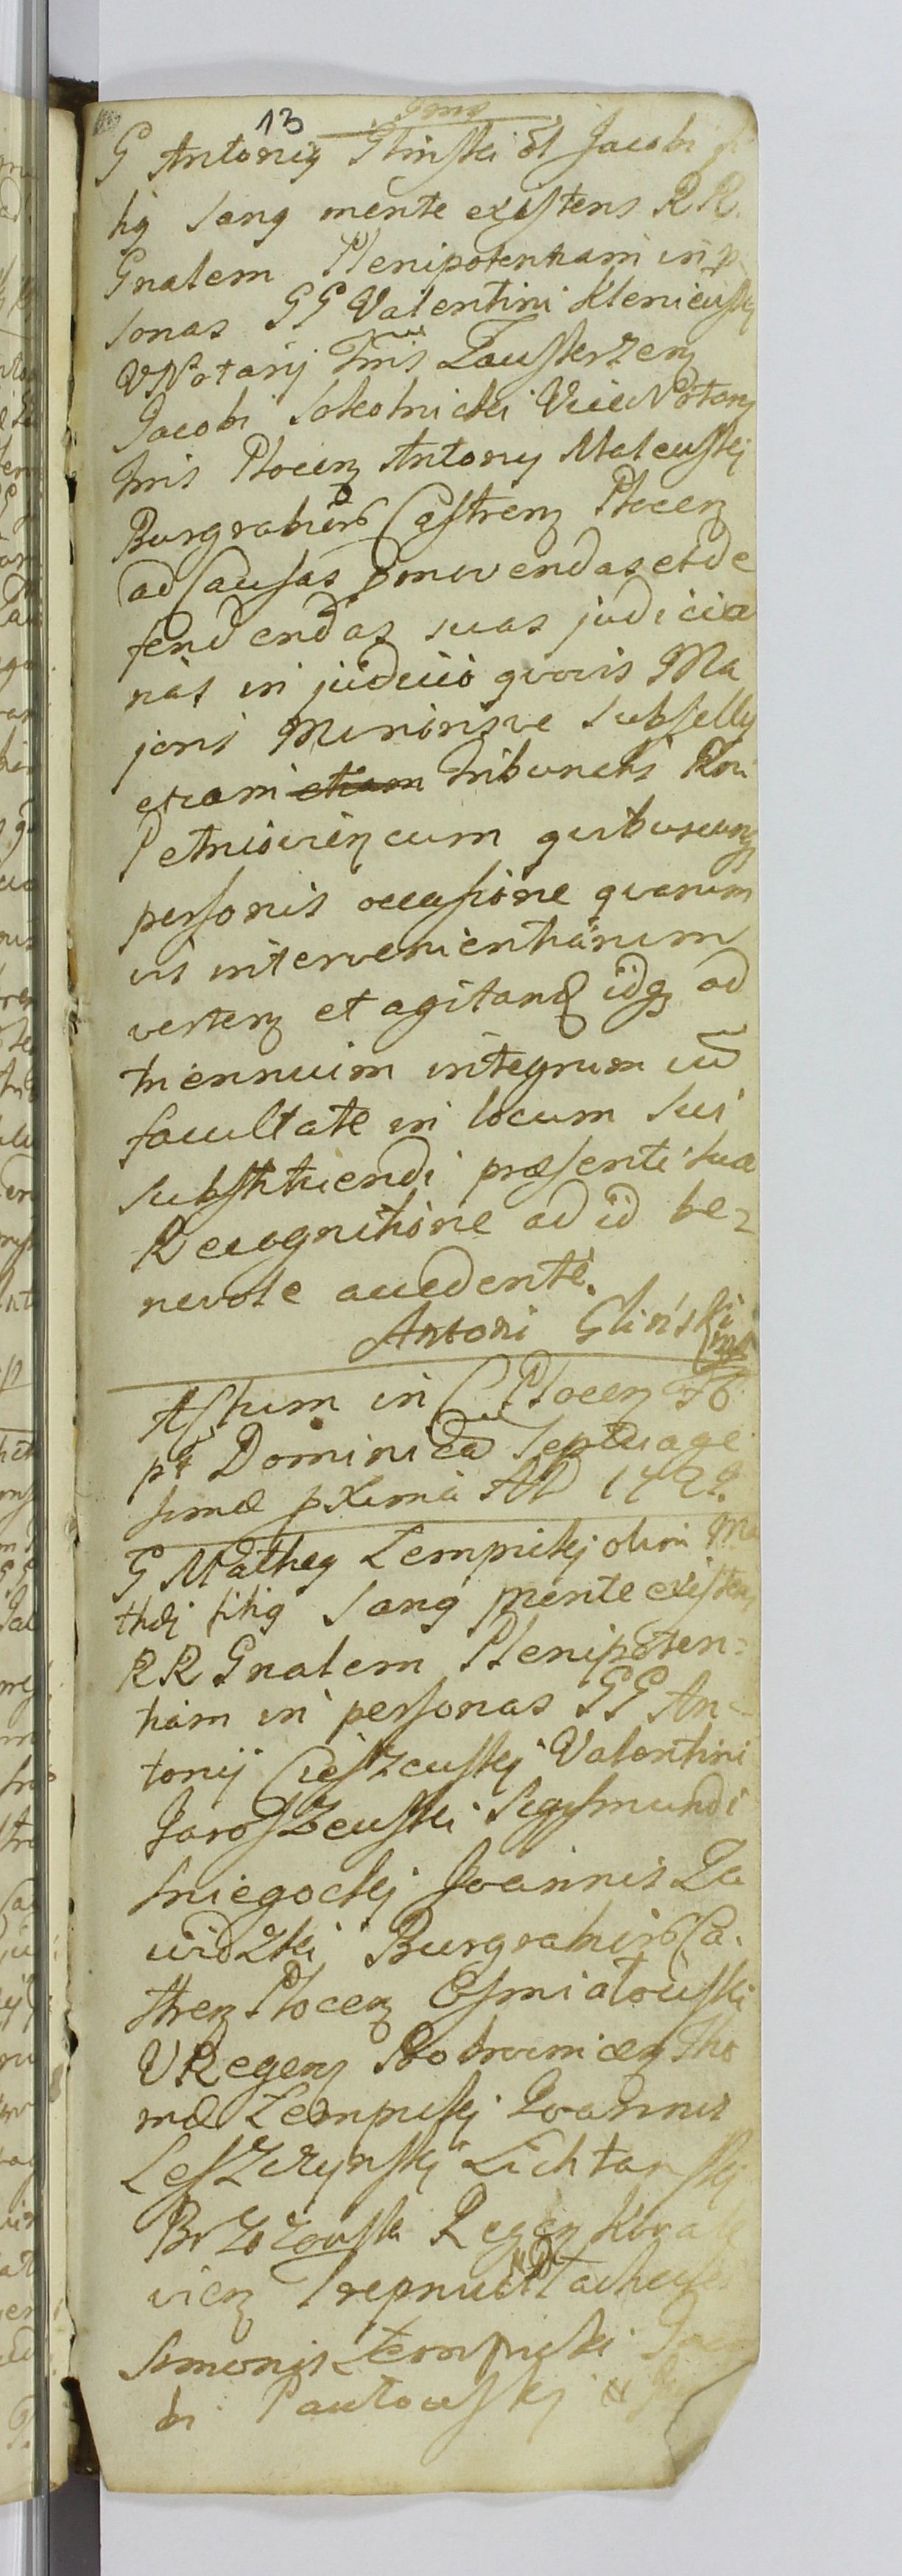 13
G Antonig Glinski ol Jacobi fi
lig sang mente existens RR
Gnalem Plenipotentiam in p
sonas GG Valentini Kleniewskj
VNotarij Tris Zawskrzen
Jacobi Sokolnicki ViceNotarij
Tris Plocen Antonij Malewskj
Burgrabior Castren Plocen
ad Causas pmovendas et de
fendendas suas judicia
rias in judicio qvovis Ma
joris Minorisve Subsellij
etiam etiam Tribunalis Rni
Petricovien cum qvibuscunq
personis occasione qvarum
vis intervenientiarum
verten et agitand idq ad
triennium integrum cu
facultate in locum sui
substituendi præsenti sua
Recognitione ad id be=
nevole accedente.
Antoni Gliński
mp
Actum in C Plocen F 6
pt Dominica Septuage
simæ pxima AD 1792.
G Matheg Zempickj olim Ma
thæi filig sang mente existens
RR Gnalem Plenipoten=
tiam in personas GG An=
tonij Cieszewskj Valentini
Jaroszewski Sigismundi
Sniegockj Joannis Za
widzki Burgrabior Ca
stren Plocen Osmialowski
VRegens Bobrownicen Tho
mæ Zempickj Joannis
Leszczynskj Lichtanskj
Brzozowski Regen Kovale
vien Trepnick
Simonis Zempicki Jaco
bi Pawłowskj